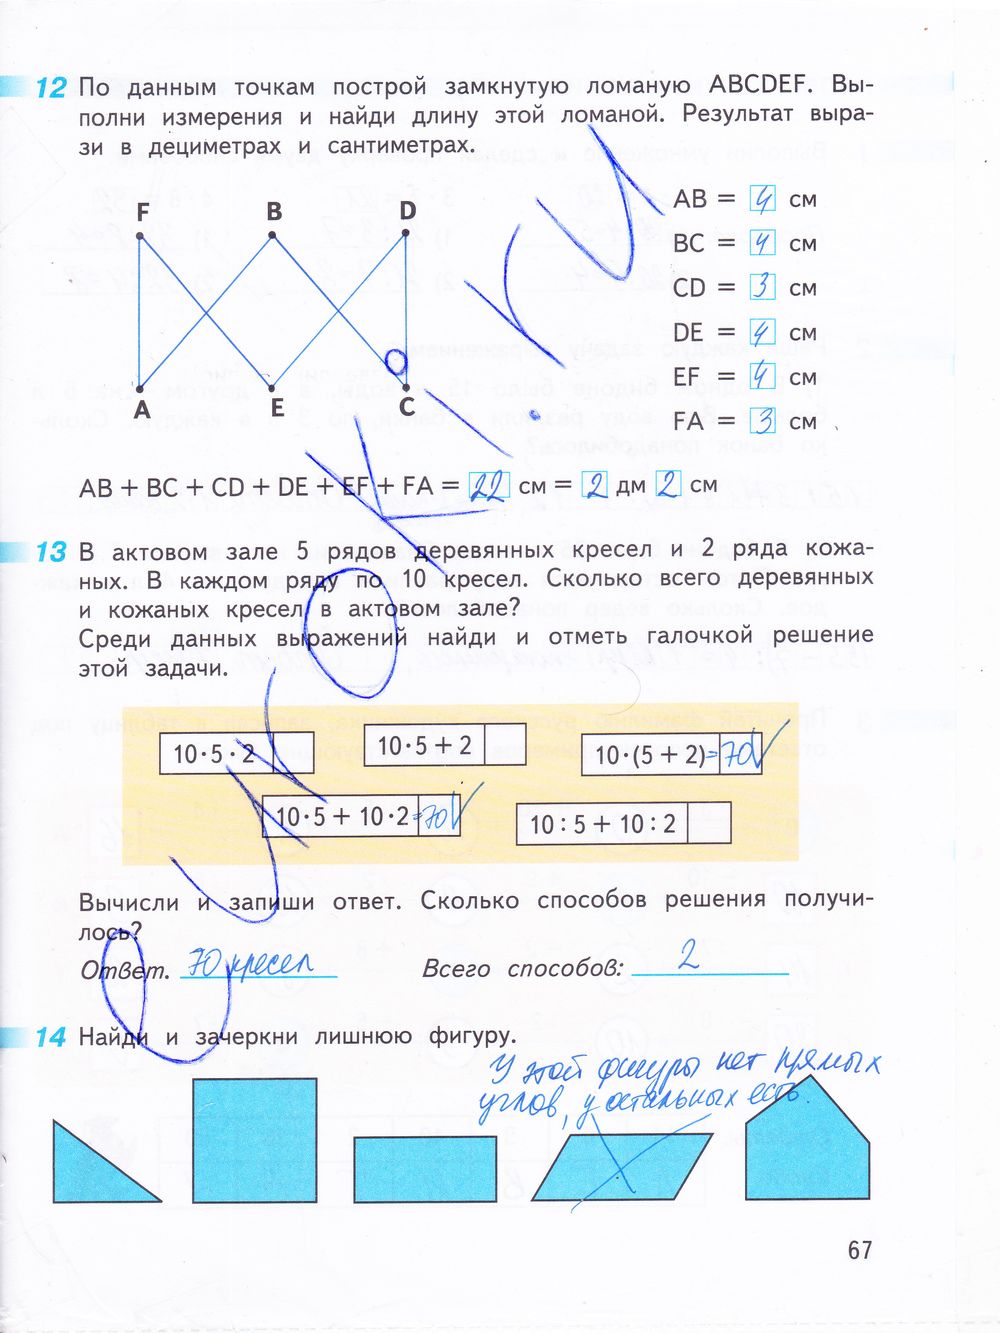 12 По данным точкам построй замкнутую ломаную ABCDEF. Вы-
полни измерения и найди длину этой ломаной. Результат выра-
зи в дециметрах и сантиметрах.
F B D
A E C
AB = 4 см
BC = 4 см
CD = 3 см
DE = 4 см
EF = 4 см
FA = 3 см
AB + BC + CD + DE + EF + FA = 22 см = 2 дм 2 см
13 В актовом зале 5 рядов деревянных кресел и 2 ряда кожа-
ных. В каждом ряду по 10 кресел. Сколько всего деревянных
и кожаных кресел в актовом зале?
Среди данных выражений найди и отметь галочкой решение
этой задачи.
10·5·2 10·5 + 2 10·(5 + 2) =70 V
10·5 + 10·2 =70 V 10 : 5 + 10 : 2
Вычисли и запиши ответ. Сколько способов решения получи-
лось?
Ответ. 70 кресел Всего способов: 2
14 Найди и зачеркни лишнюю фигуру.
У этой фигуры нет прямых
углов, у остальных есть.
67